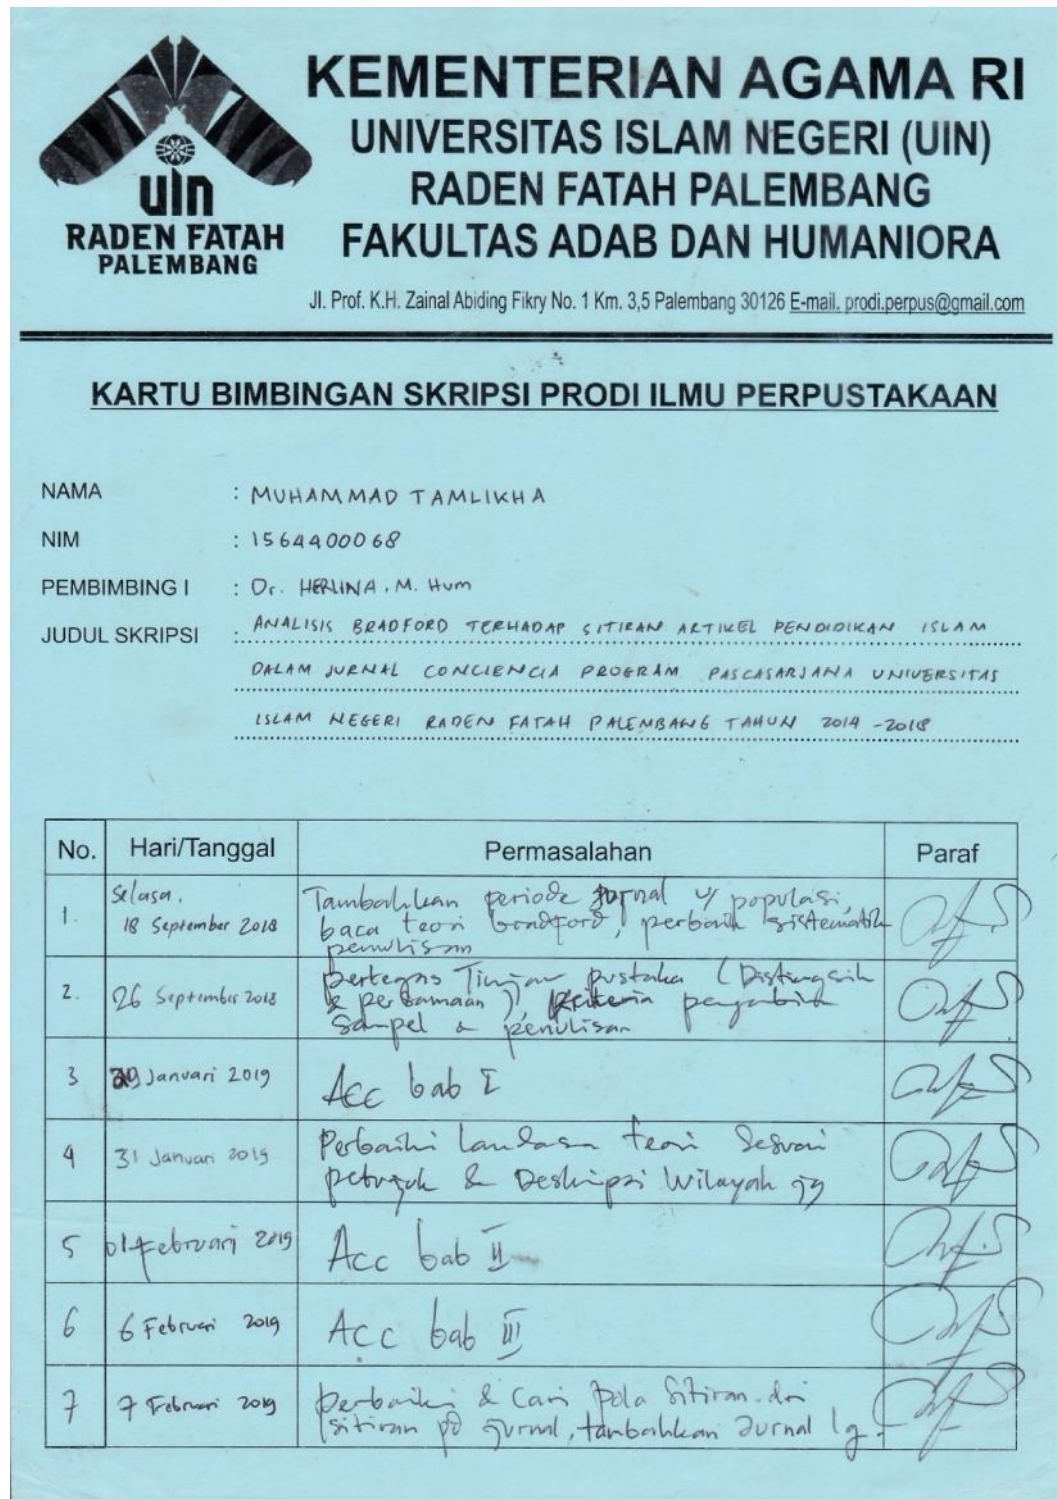 uin
RADEN FATAH
PALEMBANG
KEMENTERIAN AGAMA RI
UNIVERSITAS ISLAM NEGERI (UIN)
RADEN FATAH PALEMBANG
FAKULTAS ADAB DAN HUMANIORA
Jl. Prof. K.H. Zainal Abiding Fikry No. 1 Km. 3,5 Palembang 30126 E-mail. prodi.perpus@gmail.com
KARTU BIMBINGAN SKRIPSI PRODI ILMU PERPUSTAKAAN
NAMA : MUHAMMAD TAMLIKHA
NIM : 1564400068
PEMBIMBING I : Dr. HERLINA. M. Hum
JUDUL SKRIPSI : ANALISIS BRADFORD TERHADAP SITIRAN ARTIKEL PENDIDIKAN ISLAM
DALAM JURNAL CONCIENCIA PROGRAM PASCASARJANA UNIVERSITAS
ISLAM NEGERI RADEN FATAH PALEMBANG TAHUN 2014 -2018
No. Hari/Tanggal Permasalahan Paraf
1. Selasa, 18 September 2018
Tambahkan periode jurnal u/ populasi,
baca teori bradford, perbaiki sistematik
penulisan
2. 26 September 2018
pertegas Tinjau pustaka (Distingsih
& persamaan), kriteria
sampel & penulisan
3 Januari 2019 Acc bab I
4 31 Januari 2019
Perbaiki landasan teori Sesuai
petunjuk & Deskripsi Wilayah
5 01 Februari 2019 Acc bab II
6 6 Februari 2019 Acc bab III
7 7 Februari 2019
perbaiki & Cari Pola Sitiran dri
sitiran pd jurnal, tambahkan Jurnal lg